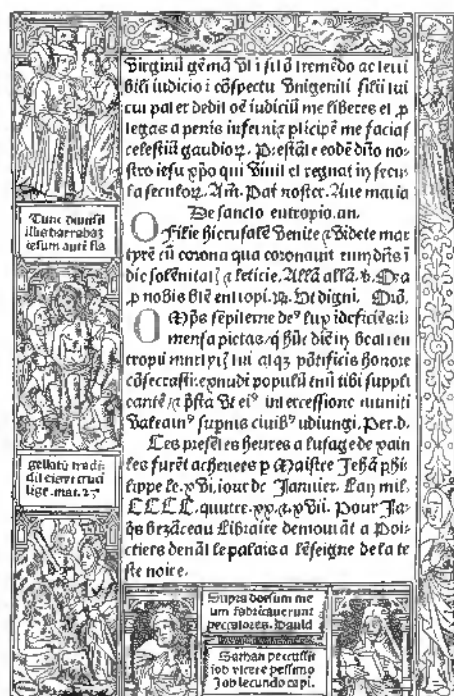 Virginū gēma Vt i sil ō tremēdo ac terri
bili iudicio i cōspectu Vnigeniti filii tui
cui pater dedit oē iudiciū me liberes et p
tegas a penis inferni ⁊ pticipē me facias
celestiū gaudioꝝ. Prestāte eodē dño no⸗
stro iesu xp̄o qui Viuit et regnat in secu
la seculoꝝ. Amē. Pať noster. Aue maria
De sancto eutropio. an.
O Filie hierusalē Venite ⁊ Videte mar
tyrē cū corona qua coronauit eum dn̄s i
die solēnitat̄ ⁊ leticie. Allā allā. ꝟ. Ora
p nobis btē eutropi. ꝶ. Vt digni. Orō.
O Mp̄s sēpiterne deꝰ
mensa pietas q̄ hūc diē in beati eu
tropii martyrꝭ tui atqꝫ pōtificis honore
cōsecrasti: exaudi populū tuū tibi suppli
cantē ⁊ p̄sta Vt eiꝰ intercessione muniti
Valeamꝰ supnis ciuibꝰ adiungi. Per. d.
Ces presētes heures a lusage de xain
tes furēt acheuees p Maistre Jehā phi
lippe le. xVi. iour de Januier. Lan mil.
CCCC. quatre. xx. ⁊. xVii. Pour Ja⸗
q̄s brezeau Libraire demourāt a Poi⸗
ctiers deuāt le palais a lēseigne de la te
ste noire.
Tunc dimisit
illis barrabaz
iesum autē fla
gellatū tradi⸗
dit eis vt cruci
fige. mat. 27
Supra dorsum me
um fabricauerunt
peccatores. Dauid
Sathan percussit
iob vlcere pessimo
Job secundo capi.